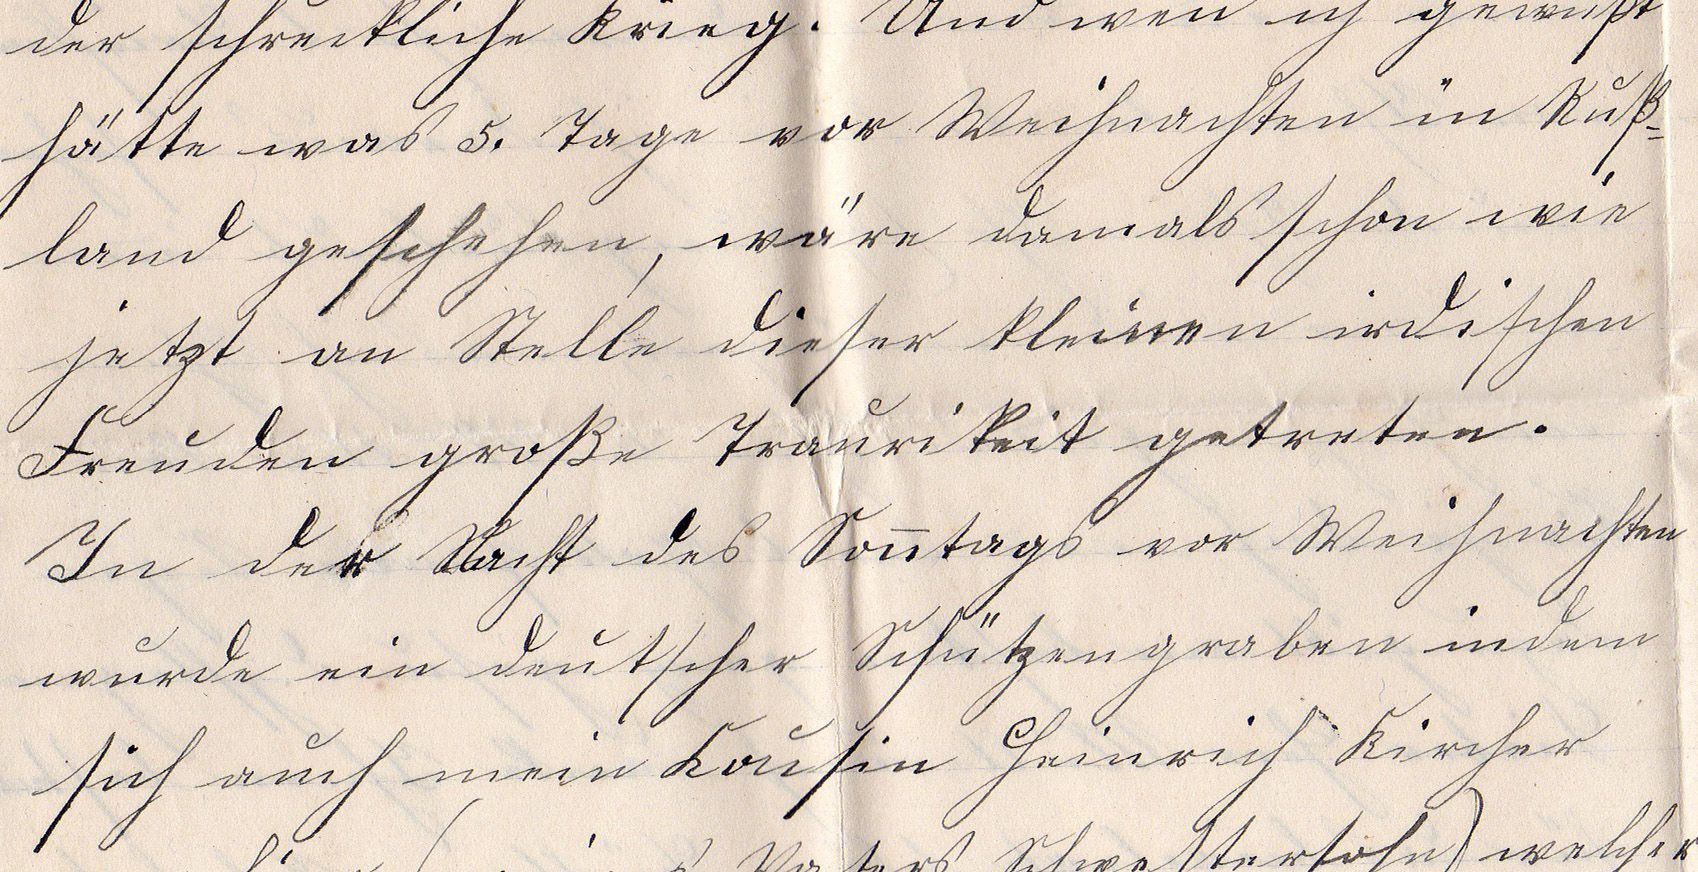 der schreckliche Krieg. Und wen ich gewußt
hätte was 5. Tage vor Weihnachten in Ruß=
land geschehen, wäre damals schon wie
jetzt an Stelle dieser kleinen irdischen
Freuden große Traurikeit getreten.
In der Nacht des Sonntags vor Weihnachten
wurde ein deutscher Schützengraben indem
sich auch mein Cousin Heinrich Kircher
( Vaters Schwestersohn) welcher